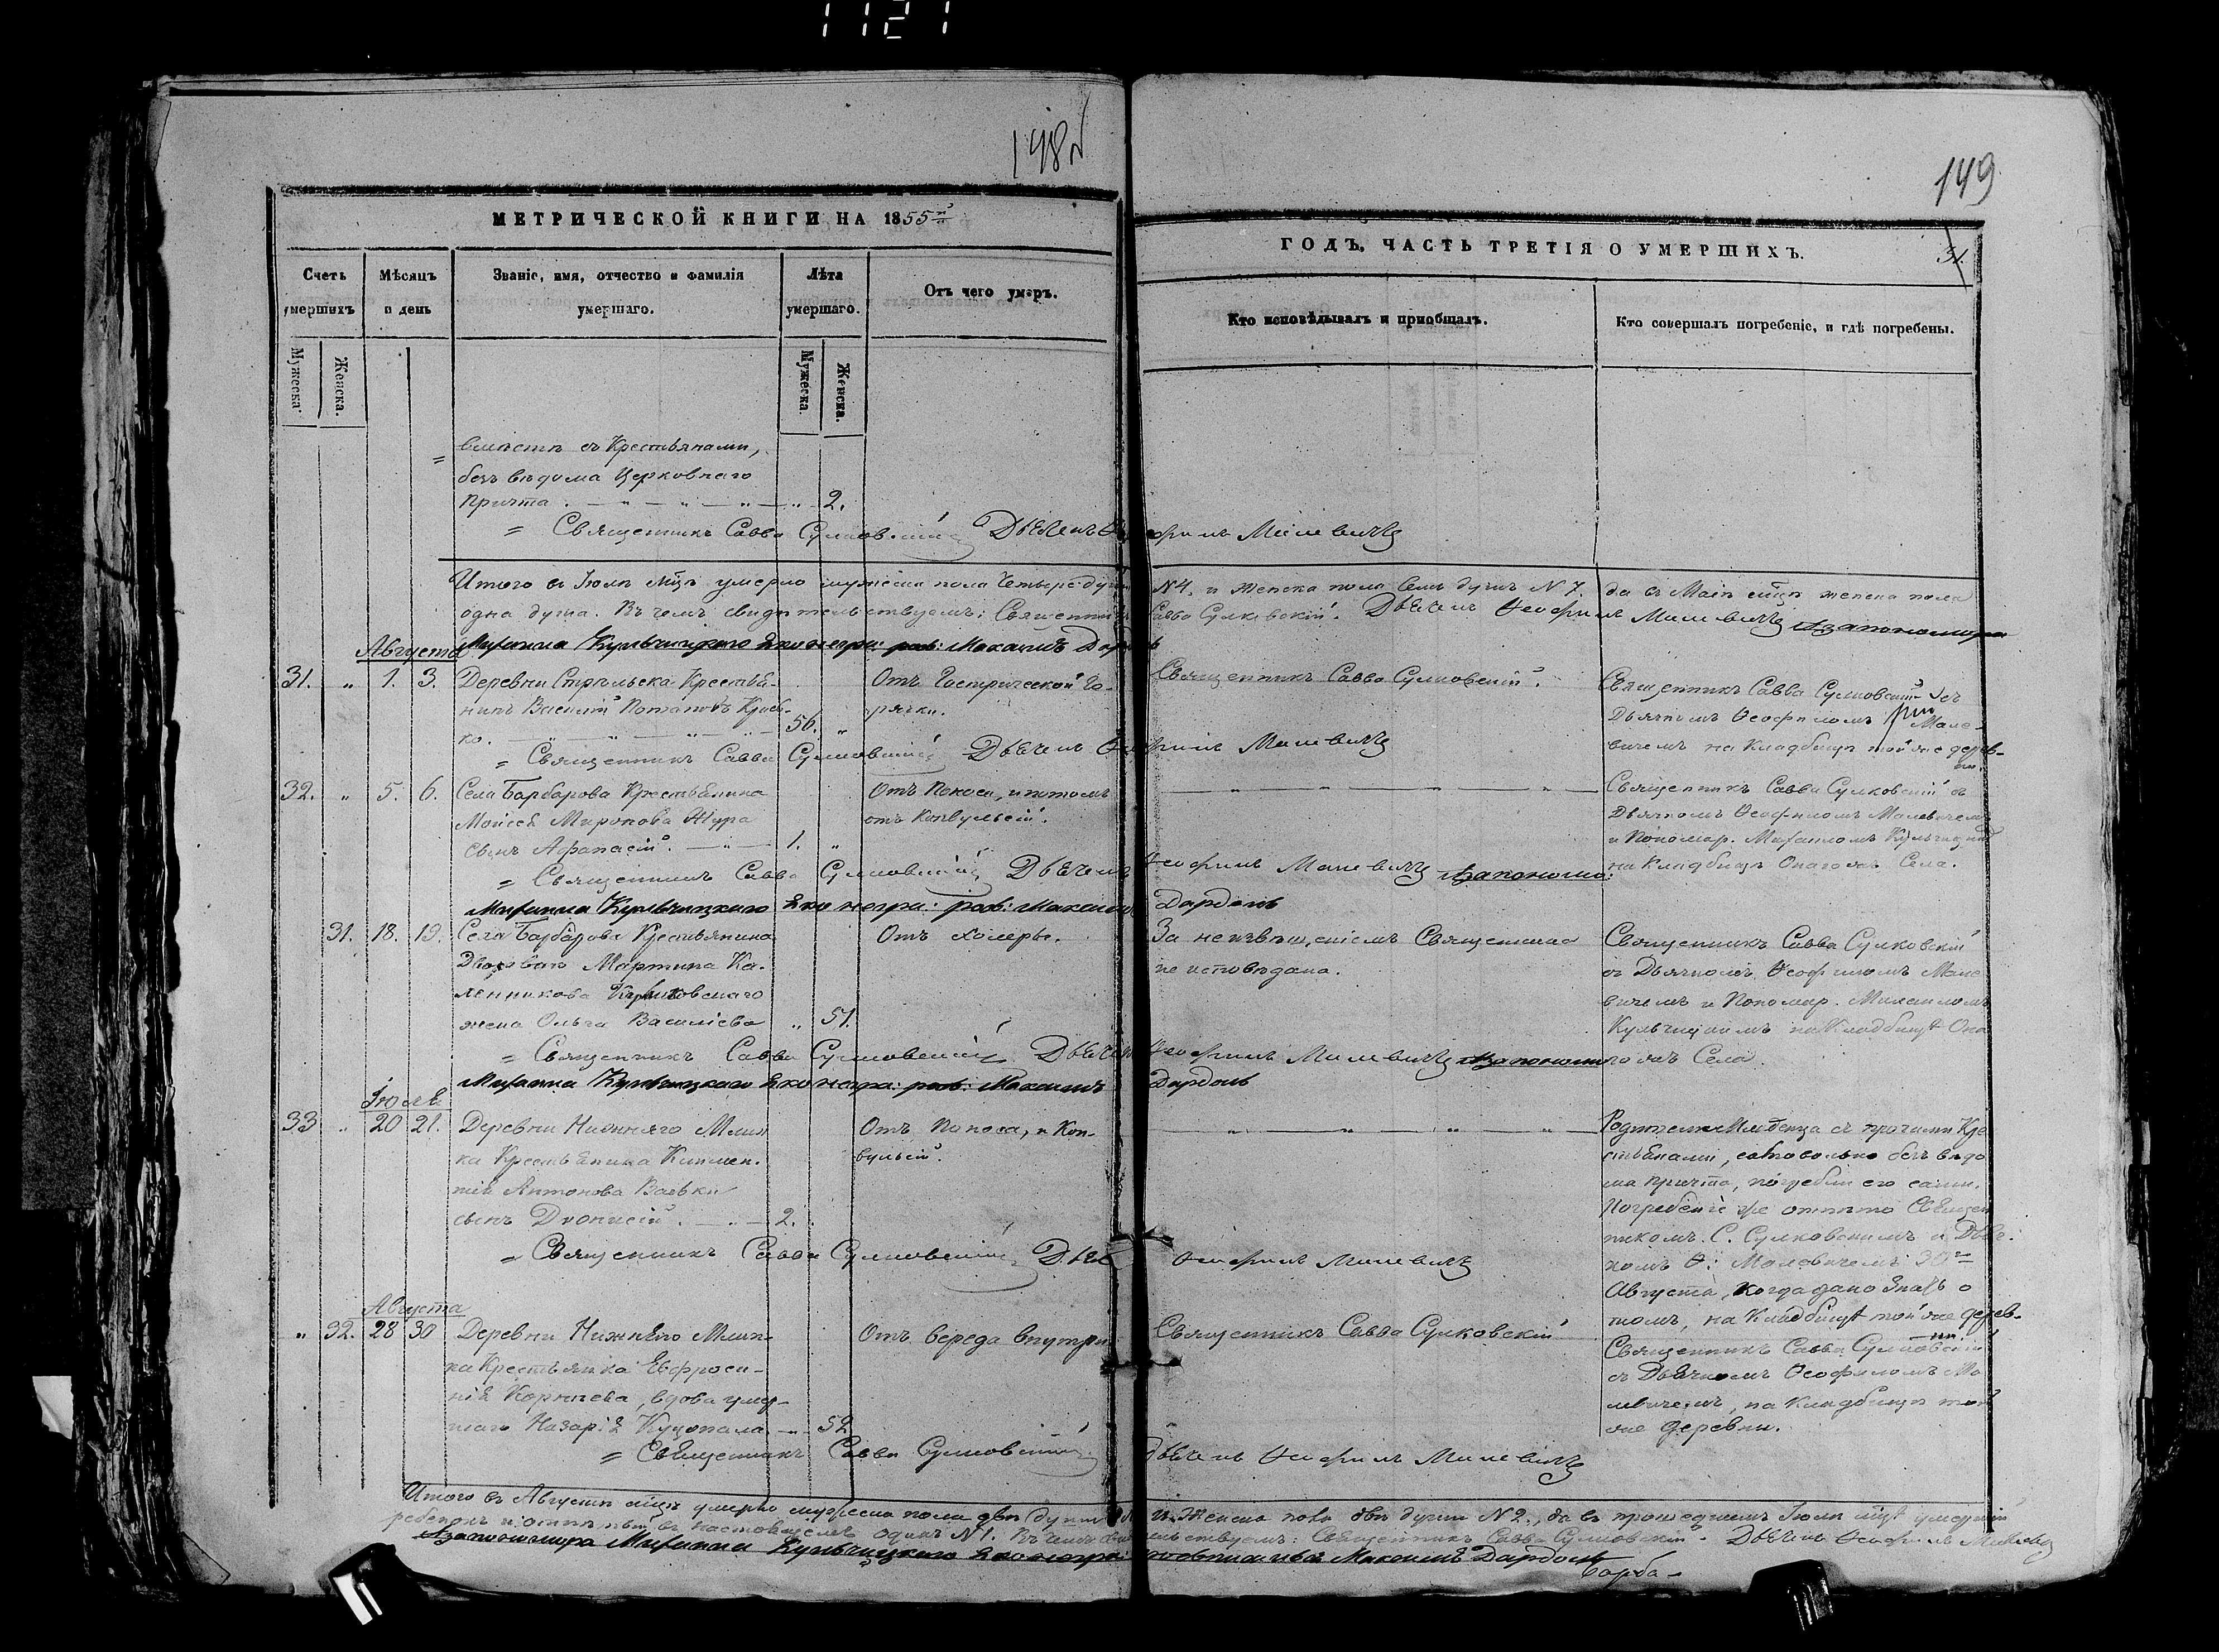 1121
148
149
МЕТРИЧЕСКОЙ КНИГИ НА 1855й
ГОДЪ, ЧАСТЬ ТРЕТІЯ О УМЕРШИХЪ.
31.
Счетъ умершихъ
Мѣсяцъ и день
Званіе, имя, отчество и фамилія умершаго.
Лѣта умершаго.
Отъ чего умеръ.
Кто исповѣдывалъ и пріобщалъ.
Кто совершалъ погребеніе, и гдѣ погребены.
Мужеска.
Женска.
Мужеска.
Женска.
вмѣстѣ съ Крестьянами,
безъ вѣдома Церковнаго
причта. 2.
Священникъ Савва Сулковскій Дьячекъ Ѳеофилъ Малевичъ
Итого въ Іюлѣ м̃цѣ умерло мужеска пола четыре души N 4. и женска пола семь душъ N 7. да въ Маіѣ м̃цѣ женска пола
одна душа. Въ чемъ свидѣтельствуемъ: Священникъ Савва Сулковскій. Дьячекъ Ѳеофилъ Малевичъ А за пономаря
Михаила Кульчицкаго яко негра: росп: Максимъ Дардоль
Августа
31. " 1. 3. Деревни Стрѣльска Крестья-
нинъ Василій Потаповъ
ко. 56. "
Отъ Гастрической Го-
рячки.
Священникъ Савва Сулковскій.
Священникъ Савва Сулковскій съ
Дьячкомъ Ѳеофиломъ Мале-
вичемъ на Кладбищѣ той же дерев-
ни.
Священникъ Савва Сулковскій Дьячекъ Ѳеофилъ Малевичъ
32. " 5. 6. Села Барбарова Крестьянина
Моисея Миронова Жура
сынъ Афанасій. 1. "
Отъ Поноса, и потомъ
отъ Конвульсій.
Священникъ Савва Сулковскій съ
Дьячкомъ Ѳеофиломъ Малевичемъ
и Пономар. Михаиломъ Кульчицким
на Кладбищѣ Онагожъ Села.
Священникъ Савва Сулковскій Дьячекъ Ѳеофилъ Малевичъ А за поном:
Михаила Кульчицкаго яко негра: росп: Максимъ Дардоль
31. 18. 19. Села Барбарова Крестьянина
Мартина Ка-
ленникова
жена Ольга Василіева " 51.
Отъ холеры.
За неизвѣщеніемъ Священника
не исповѣдана.
Священникъ Савва Сулковскій
съ Дьячкомъ Ѳеофиломъ Мале
вичемъ и Пономар. Михаиломъ
Кульчицкимъ на Кладбищѣ Она
гожъ Села
Священникъ Савва Сулковскій Дьячекъ Ѳеофилъ Малевичъ А за поном
Михаила Кульчицкаго яко негра: росп: Максимъ Дардоль
Іюля
33 " 20 21. Деревни Нижняго Млин
ка Крестьянина Климен-
тія Антонова Вавки
сынъ Діонисій. 2.
Отъ Поноса, и Кон-
вульсій.
Родители Младенца съ прочими Кре
стьянами, самовольно безъ вѣдо
ма причта, погребли его сами.
Погребеніе же отпѣто Священ
никомъ С. Сулковскимъ и Дьяч-
комъ Ѳ: Малевичемъ 30го
Августа, когда дано знать о
томъ, на Кладбищѣ той же дерев-
ни
Священникъ Савва Сулковскій Дьяче Ѳеофилъ Малевичъ
Августа
" 32. 28 30 Деревни Нижняго Млин-
ка Крестьянка Евфроси-
нія Корнѣева, вдова умер-
шаго Назарія 52
Отъ вереда внутри
Священникъ Савва Сулковскій
Священникъ Савва Сулковскій
съ Дьячкомъ Ѳеофиломъ Ма
левичемъ, на Кладбищѣ той
же деревни.
Священникъ Савва Сулковскій Дьячекъ Ѳеофилъ Малевичъ
Итого въ Августѣ м̃цѣ умерло мужеска пола двѣ души и Женска пола двѣ души N 2., да въ прошедшемъ Іюлѣ м̃цѣ умершій
ребенокъ и отпѣтый въ настоящемъ одинъ N 1. Въ чемъ свидѣтельствуемъ: Священникъ Савва Сулковскій. Дьячекъ Ѳеофилъ Малевичъ
А за пономаря Михаила Кульчицкаго яко негра: росписался Максимъ Дардоль
Барба-